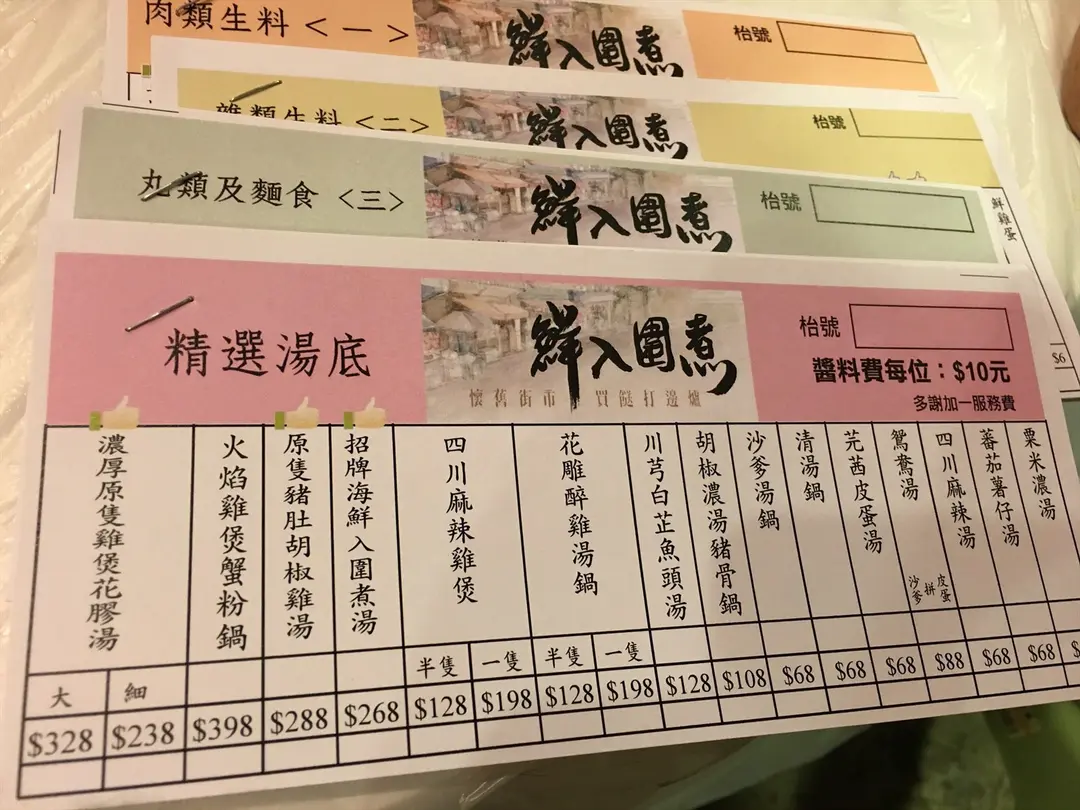 肉類生料 <一>
鮮入圍煮
枱號
雜類生料 <二>
鮮入圍煮
枱號
丸類及麵食 <三>
鮮入圍煮
枱號
鮮雞蛋
$6
精選湯底
鮮入圍煮
懷舊街市 買餸打邊爐
枱號
醬料費每位：$10元
多謝加一服務費
濃厚原隻雞煲花膠湯
火焰雞煲蟹粉鍋
原隻豬肚胡椒雞湯
招牌海鮮入圍煮湯
四川麻辣雞煲
花雕醉雞湯鍋
川芎白芷魚頭湯
胡椒濃湯豬骨鍋
沙爹湯鍋
清湯鍋
芫茜皮蛋湯
鴛鴦湯
沙爹 拼 皮蛋
四川麻辣湯
蕃茄薯仔湯
粟米濃湯
大 細 半隻 一隻 半隻 一隻
$328 $238 $398 $288 $268 $128 $198 $128 $198 $128 $108 $68 $68 $68 $88 $68 $68